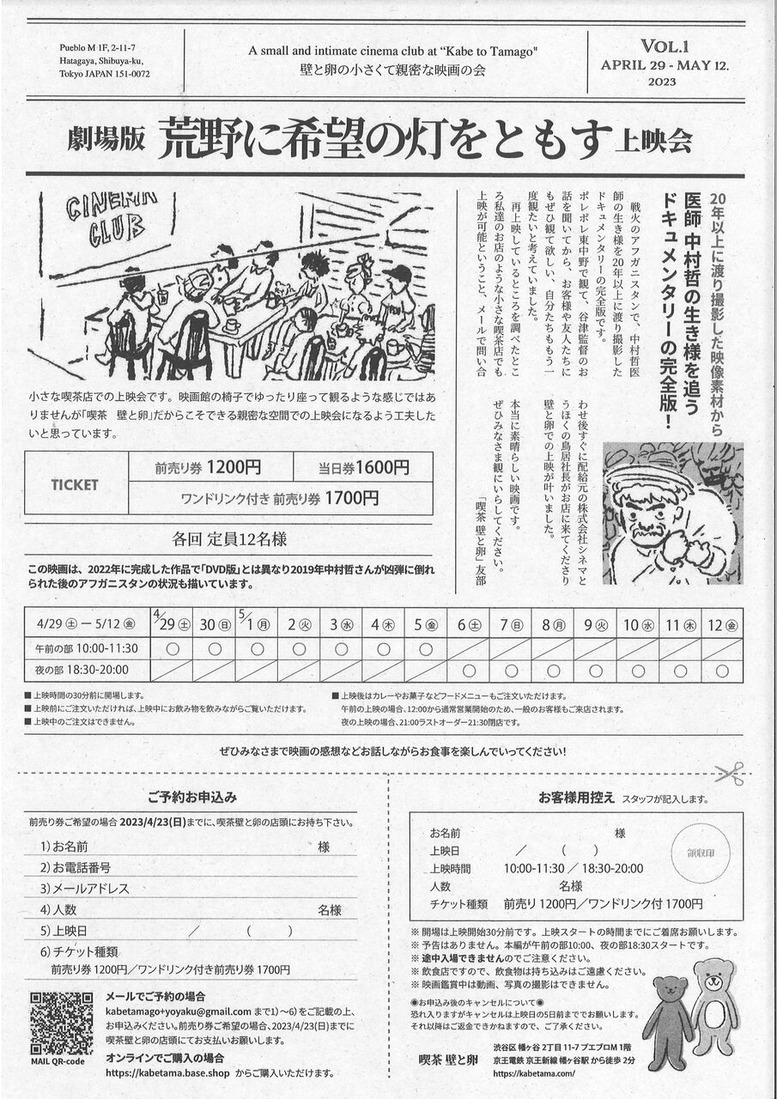 Pueblo M 1F, 2-11-7
Hatagaya, Shibuya-ku,
Tokyo JAPAN 151-0072
A small and intimate cinema club at "Kabe to Tamago"
壁と卵の小さくて親密な映画の会
VOL.1
APRIL 29 - MAY 12.
2023
劇場版 荒野に希望の灯をともす 上映会
CINEMA
CLUB
20年以上に渡り撮影した映像素材から
医師 中村哲の生き様を追う
ドキュメンタリーの完全版！
戦火のアフガニスタンで、中村哲医
師の生き様を20年以上に渡り撮影した
ドキュメンタリーの完全版です。
ポレポレ東中野で観て、谷津監督のお
話を聞いてから、お客様や友人たちに
もぜひ観て欲しい、自分たちももう一
度観たいと考えていました。
再上映しているところを調べたとこ
ろ私達のお店のような小さな喫茶店でも
上映が可能ということ、メールで問い合
わせ後すぐに配給元の株式会社シネマと
うほくの鳥居社長がお店に来てくださり
壁と卵での上映が叶いました。
本当に素晴らしい映画です。
ぜひみなさま観にいらしてください。
「喫茶 壁と卵」友部
小さな喫茶店での上映会です。映画館の椅子でゆったり座って観るような感じではあ
りませんが「喫茶　壁と卵」だからこそできる親密な空間での上映会になるよう工夫した
いと思っています。
TICKET
前売り券 1200円
当日券1600円
ワンドリンク付き 前売り券 1700円
各回 定員12名様
この映画は、2022年に完成した作品で「DVD版」とは異なり2019年中村哲さんが凶弾に倒れ
られた後のアフガニスタンの状況も描いています。
4/29㊏ — 5/12㊎ 4/29㊏ 30㊐ 5/1㊊ 2㊋ 3㊌ 4㊍ 5㊎ 6㊏ 7㊐ 8㊊ 9㊋ 10㊌ 11㊍ 12㊎
午前の部 10:00-11:30 ○ ○ ○ ○ ○ ○ ○
夜の部 18:30-20:00 ○ ○ ○ ○ ○ ○ ○
■ 上映時間の30分前に開場します。
■ 上映前にご注文いただければ、上映中にお飲み物を飲みながらご覧いただけます。
■ 上映中のご注文はできません。
■ 上映後はカレーやお菓子などフードメニューもご注文いただけます。
午前の上映の場合、12:00から通常営業開始のため、一般のお客様もご来店されます。
夜の上映の場合、21:00ラストオーダー21:30閉店です。
ぜひみなさまで映画の感想などお話しながらお食事を楽しんでいってください！
ご予約お申込み
前売り券ご希望の場合 2023/4/23(日)までに、喫茶壁と卵の店頭にお持ち下さい。
1)お名前 様
2)お電話番号
3)メールアドレス
4)人数 名様
5)上映日 ／ （ ）
6)チケット種類
前売り券 1200円／ワンドリンク付き前売り券 1700円
MAIL QR-code
メールでご予約の場合
kabetamago+yoyaku@gmail.com まで1)〜6)をご記載の上、
お申込みください。前売り券ご希望の場合、2023/4/23(日)までに
喫茶壁と卵の店頭にてお支払いお願いします。
オンラインでご購入の場合
https://kabetama.base.shop からご購入いただけます。
お客様用控え スタッフが記入します。
お名前 様
上映日 ／ （ ）
上映時間 10:00-11:30 ／ 18:30-20:00
人数 名様
チケット種類 前売り 1200円／ワンドリンク付 1700円
領収印
※ 開場は上映開始30分前です。上映スタートの時間までにご着席お願いします。
※ 予告はありません。本編が午前の部10:00、夜の部18:30スタートです。
※ 途中入場できませんのでご注意ください。
※ 飲食店ですので、飲食物は持ち込みはご遠慮ください。
※ 映画鑑賞中は動画、写真の撮影はできません。
◉お申込み後のキャンセルについて◉
恐れ入りますがキャンセルは上映日の5日前まででお願いします。
それ以降はご返金できかねますので、ご了承ください。
喫茶 壁と卵
渋谷区 幡ヶ谷 2丁目 11-7 プエブロM 1階
京王電鉄 京王新線 幡ヶ谷駅 から徒歩 2分
https://kabetama.com/